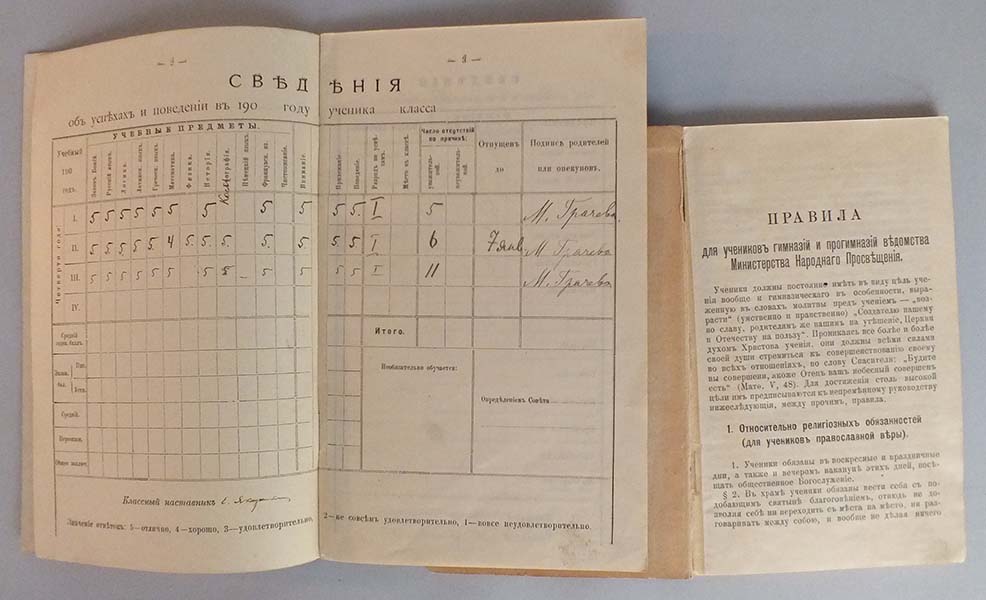 — 2 —
— 3 —
СВѢДѢНІЯ
объ успѣхахъ и поведеніи въ 190 году ученика класса
Учебный
190
годъ.
УЧЕБНЫЕ ПРЕДМЕТЫ.
Законъ Божій.
Русскій языкъ.
Логика.
Латинск. языкъ.
Греческ. языкъ.
Математика.
Физика.
Исторія.
Географія.
Нѣмецкій языкъ.
Французск. яз.
Чистописаніе.
Вниманіе.
Прилежаніе.
Поведеніе.
Разрядъ по успѣхамъ.
Мѣсто въ классѣ.
Число отсутствій
по причинѣ:
уважительной.
неуважительной.
Отпущенъ
до
Подпись родителей
или опекуновъ.
Четверти года:
I. 5 5 5 5 5 5 5 5 5 5 5. I 5 М. Грачева.
II. 5. 5. 5 5 5 4 5. 5. 5. 5. 5 5 5. I 6 7 янв. М Грачева
III. 5 5 5 5 5 5 5 5 – 5 5 5 5. I 11 М. Грачева
IV.
Средній
годов. баллъ.
Экзам.
бал.
Пис.
Устн.
Средній.
Переэкзам.
Общее заключ.
Итого.
Необязательно обучается:
Опредѣленіемъ Совѣта
Классный наставникъ
Значеніе отмѣтокъ: 5—отлично, 4—хорошо, 3—удовлетворительно,
2—не совсѣмъ удовлетворительно, 1—вовсе неудовлетворительно.
ПРАВИЛА
для учениковъ гимназій и прогимназій вѣдомства
Министерства Народнаго Просвѣщенія.
Ученики должны постоянно имѣть въ виду цѣль уче-
нія вообще и гимназическаго въ особенности, выра-
женную въ словахъ молитвы предъ ученіемъ — „воз-
расти“ (умственно и нравственно) „Создателю нашему
во славу, родителямъ же нашимъ на утѣшеніе, Церкви
и Отечеству на пользу“. Проникаясь все болѣе и болѣе
духомъ Христова ученія, они должны всѣми силами
своей души стремиться къ совершенствованію своему
во всѣхъ отношеніяхъ, по слову Спасителя: „Будите
вы совершени, якоже Отецъ вашъ небесный совершенъ
есть“ (Матѳ. V, 48). Для достиженія столь высокой
цѣли имъ предписываются къ непремѣнному руководству
нижеслѣдующія, между прочимъ, правила.
I. Относительно религіозныхъ обязанностей
(для учениковъ православной вѣры).
1. Ученики обязаны въ воскресные и праздничные
дни, а также и вечеромъ наканунѣ этихъ дней, посѣ-
щать общественное Богослуженіе.
§ 2. Въ храмѣ ученики обязаны вести себя съ по-
добающимъ святынѣ благоговѣніемъ, отнюдь не до-
зволяя себѣ ни переходить съ мѣста на мѣсто, ни раз-
говаривать между собою, и вообще не дѣлая ничего